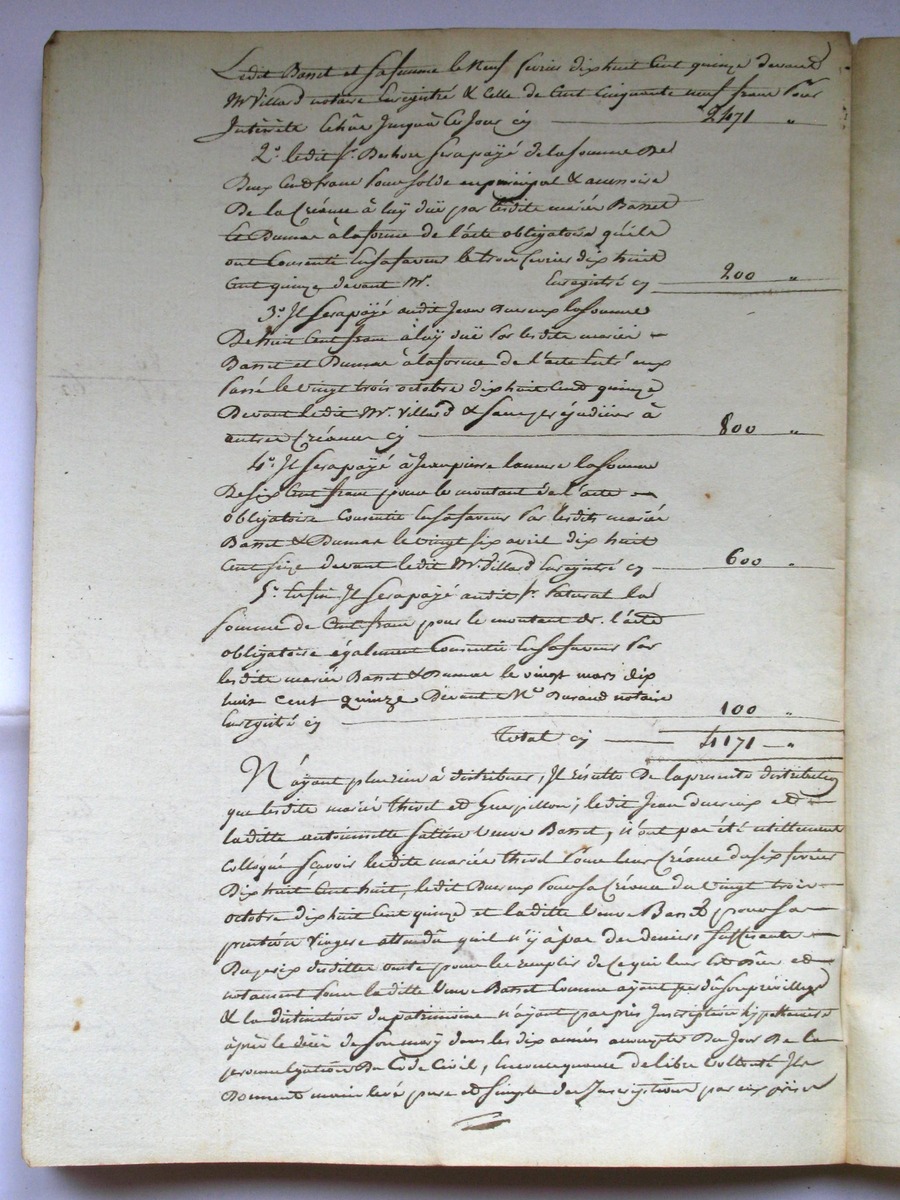 Ledit Basset et sa femme le Neuf fevrier dix huit Cent quinze devant
Mr Villard notaire Enregistré & Celle de Cent Cinquante neuf franc pour
Intérêts échûs Jusqu'à Ce Jour cy 2471 "
2° ledit Sr. sera payé de la somme De
Deux Cent franc pour solde en principal & accessoire
De la Créance à luy düe par lesdits mariés Basset
Et Dumas à la forme de l'acte obligatoire qu'ils
ont Consenti En sa faveur le trois fevrier dix huit
Cent quinze devant Mr. Enregistré cy 200 "
3° Il sera payé audit Jean Dureux la somme
De huit Cent franc à luy düe par lesdits mariés
Basset et Dumas à la forme de l'acte Entr'eux
Passé le vingt trois octobre dix huit Cent quinze
Devant ledit Mr. Villard & sans préjudicier à
autres Créances cy 800 "
4° Il sera payé à Jean pierre la somme
De six Cent franc pour le montant de l'acte
obligatoire Consentie En sa faveur Par lesdits mariés
Basset & Dumas le vingt six avril dix huit
Cent seize devant ledit Mr. Villard Enregistré cy 600 "
5° Enfin Il sera payé audit Sr. Paturat la
somme de Cent franc pour le montant de l'acte
obligatoire également Consentie En sa faveur Par
lesdits mariés Basset & Dumas le vingt mars dix
huit cent quinze Devant Me Durand notaire
Enregistré cy 100 "
Total cy 4171 "
N'ayant plus rien à distribuer, Il résulte De la présente distribution
que lesdits mariés thivel et Guerpillon, ledit Jean dureux et
laditte antoinette Veuve Basset, n'ont pas été utillement
Colloqué sçavoir lesdits mariés thivel Pour leur Créance du six fevrier
Dix huit Cent huit, ledit Dureux Pour sa Créance du vingt trois
octobre dix huit Cent quinze et laditte Veuve Basset pour sa
pention viagere attendû qu'il n'y à pas des deniers suffisants
Du prix desdittes vente pour les remplir de Ce qui leur Est dûe et
notament Pour laditte Veuve Basset Comme ayant perdû son privillege
& la distinction du patrimoine n'ayant pas pris Inscription hypothecaire
après le décès de son mary dans les dix années Du Jour De la
promulgation Du Code Civil, En consequence de libre volonté Ils
Donnent main levé pure et simple des Inscriptions par eux prises